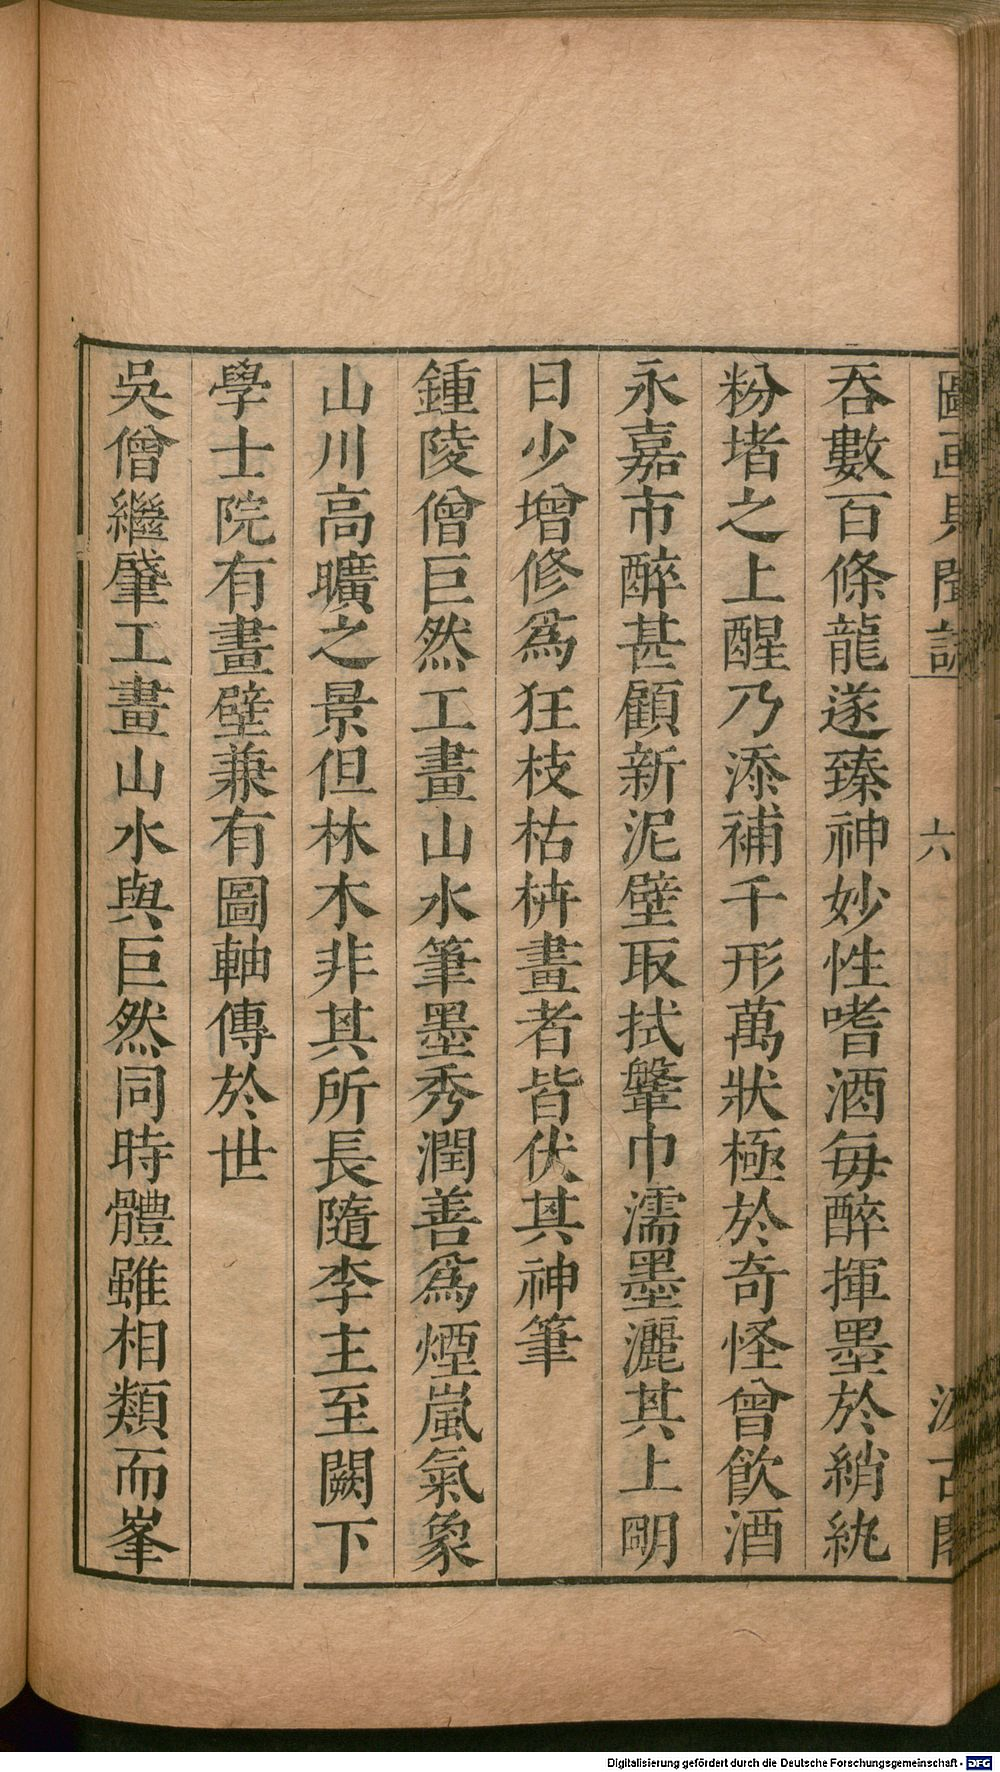 圖畫見聞誌　六　汲古閣
吞數百條龍遂臻神妙性嗜酒每醉揮墨於綃紈
粉堵之上醒乃添補千形萬狀極於奇怪曾飲酒
永嘉市醉甚顧新泥壁取拭盤巾濡墨灑其上明
日少增修爲狂枝枯枿畫者皆伏其神筆
鍾陵僧巨然工畫山水筆墨秀潤善爲煙嵐氣象
山川高曠之景但林木非其所長隨李主至闕下
學士院有畫壁兼有圖軸傳於世
吳僧繼肇工畫山水與巨然同時體雖相類而峯
Digitalisierung gefördert durch die Deutsche Forschungsgemeinschaft - DFG